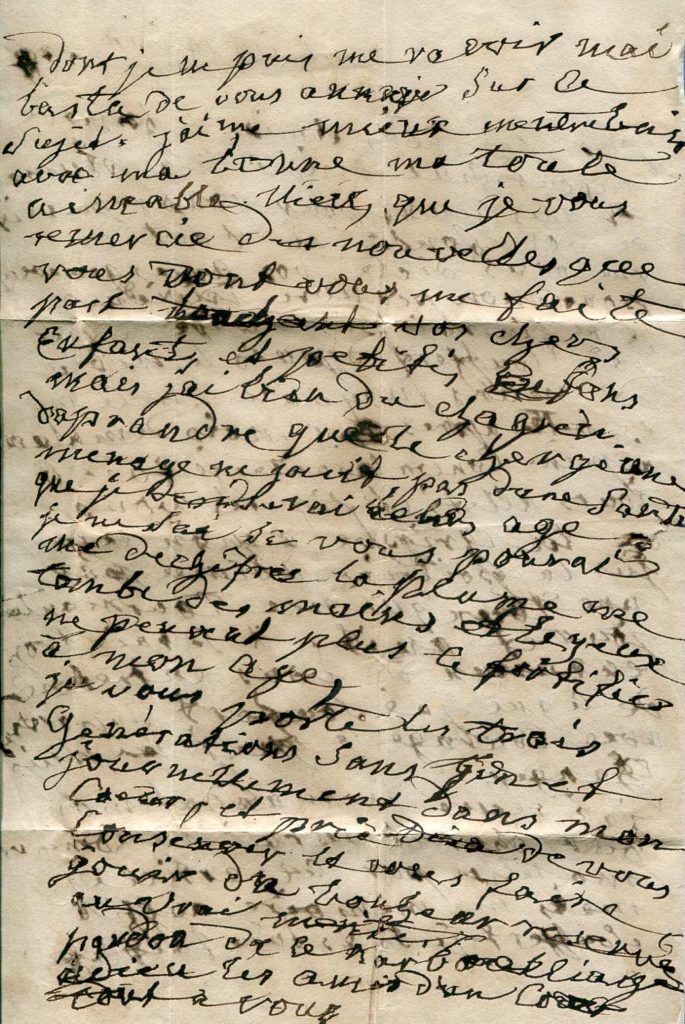 dont je m puis me ravoir mai
basta de vous annuyé sur ce
sujet. j'aime mieux mentretenir
avec ma bonne ma toute
aimable que je vous
remercie des nouvelles que
vous vous me faite
part nos chers
Enfants et petits
mais j'ai bien du chagrin
daprandre que le cher jeune
menage ne jouit pas dune Santé
que je desirerai a leur age
je ne sai se vous pourai
me dechifrer la plume me
tombe des mains et les yeux
ne peuvent plus ce fortifier
à mon age,
je vous porte les trois
Generations sans fin et
journellement dans mon
Coeur et prie Dieu de vous
Conserver et vous faire
jouir du bonheur reservé
au vrai merite
pardon de le barbouilliage
adieu les amis d'un Coeur
tout a vous